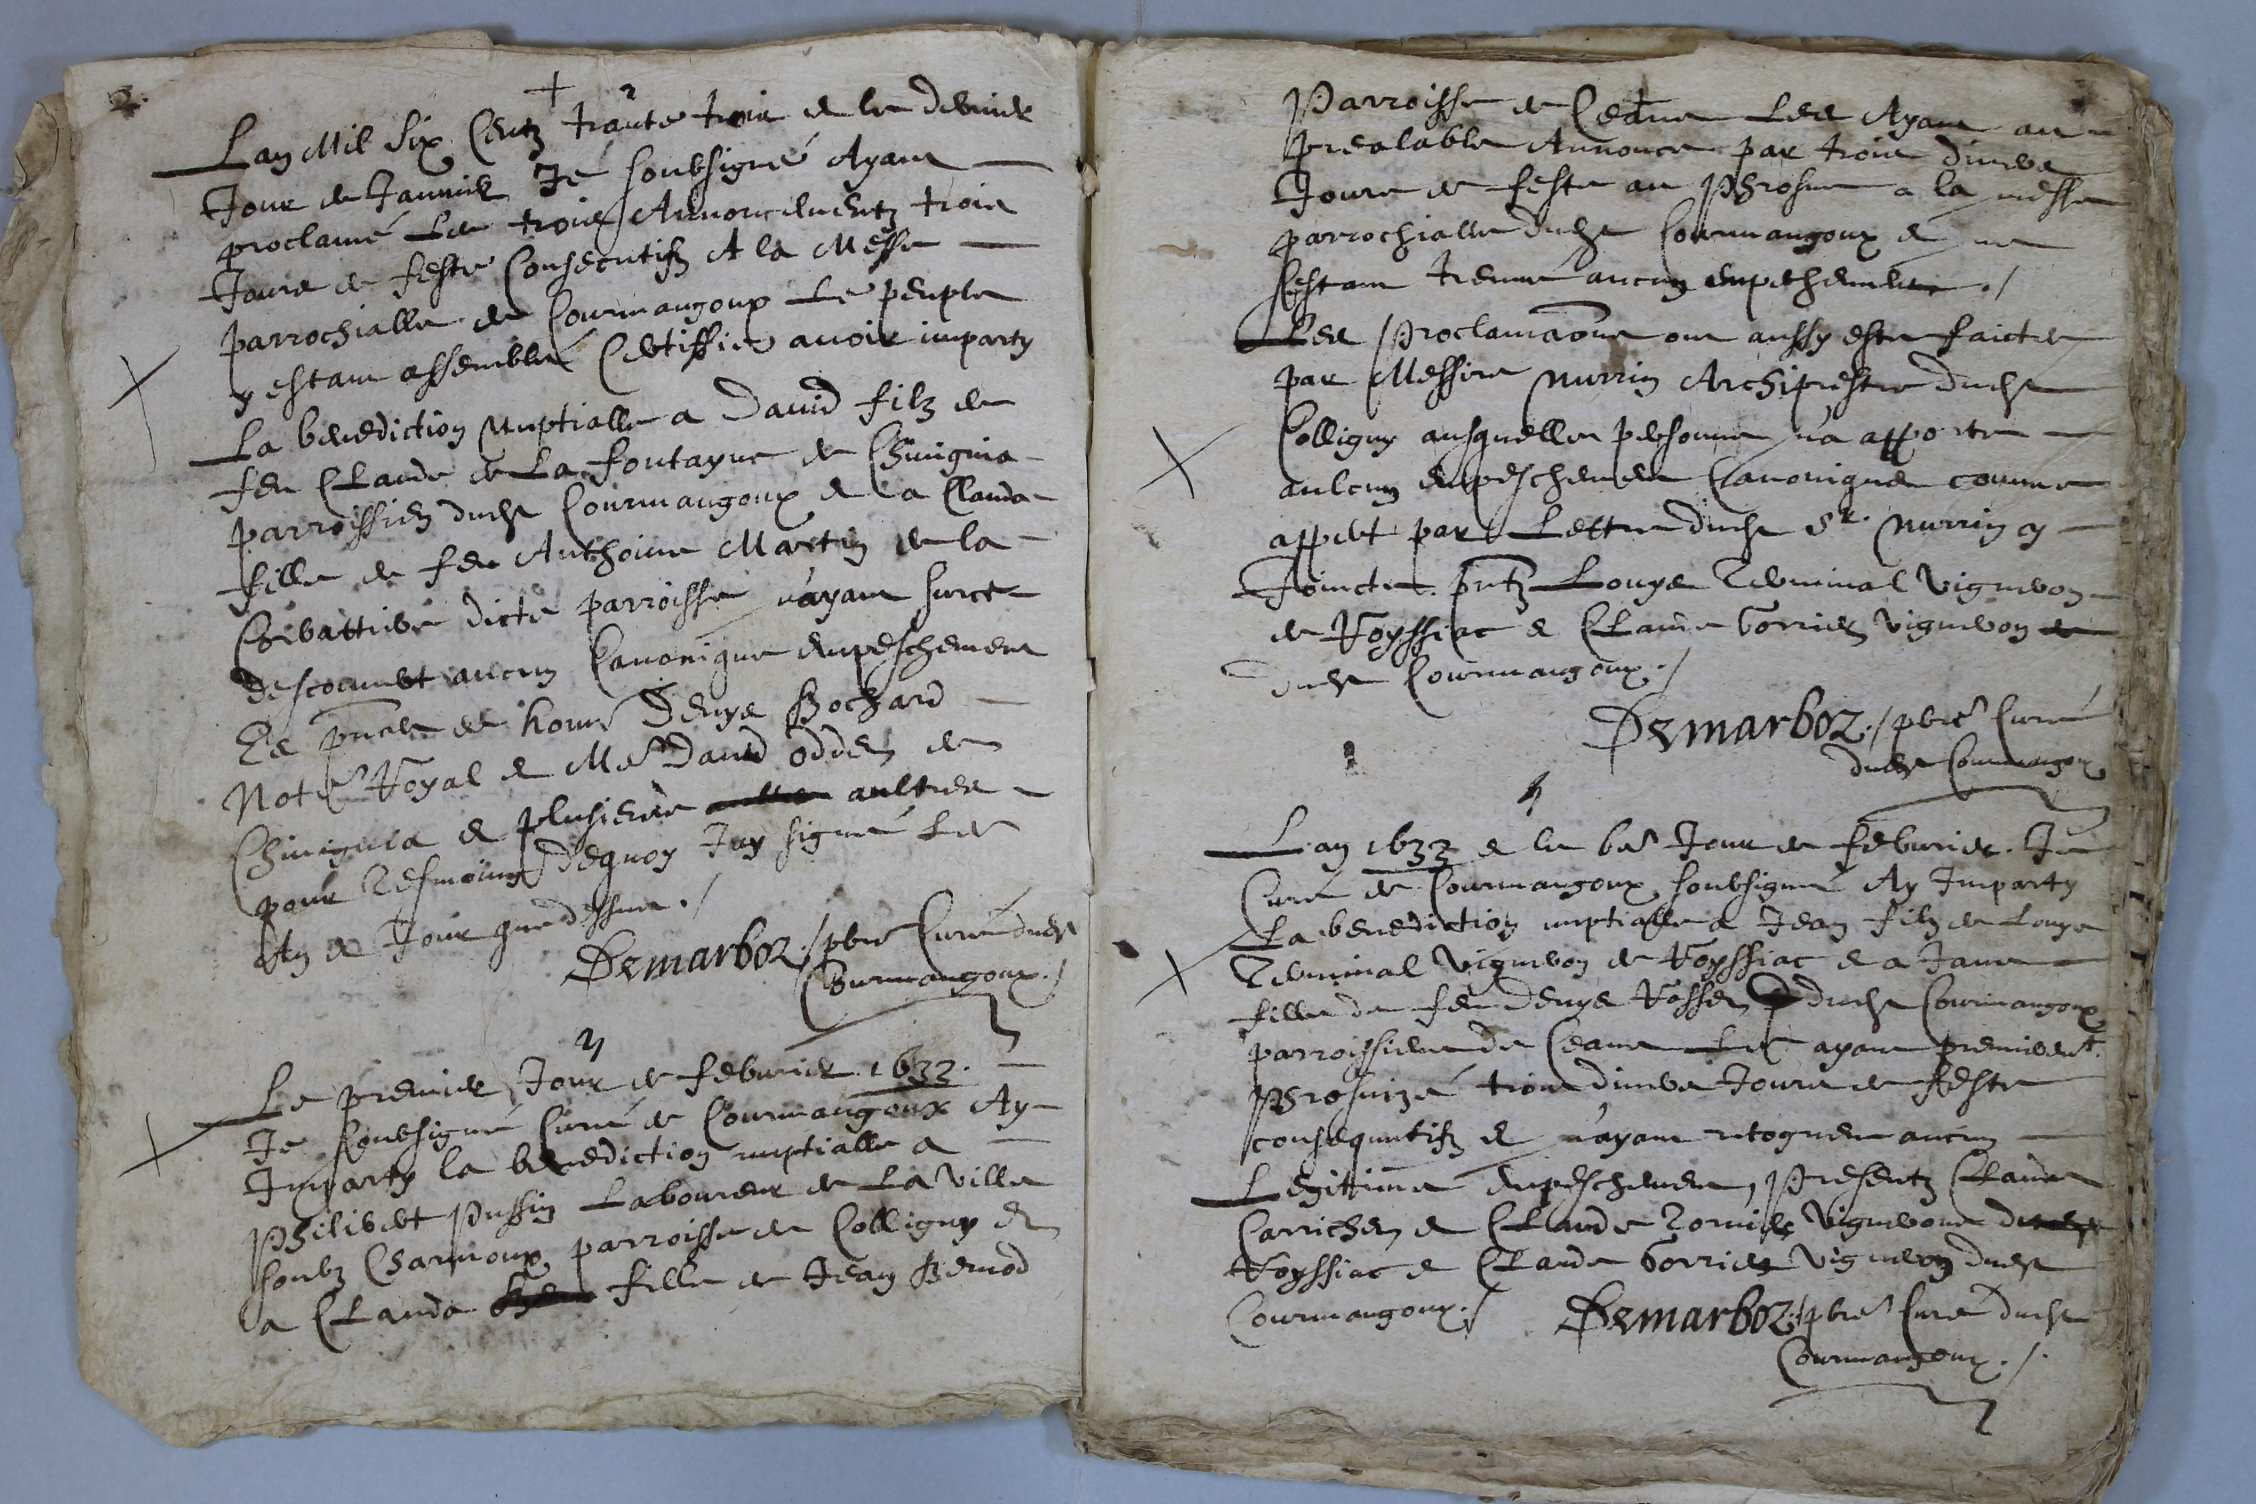 Lan Mil Six Centz trante trois & le dernier
Jour de Januier Je soubsigné Ayant
proclamé Les trois Annoncementz trois
Jours de feste Consecutifz A la Messe
parrochialle de Courmangoux Le peuple
y estant assemblé Certiffie auoir imparty
La benediction Nuptialle a Dauid filz de
feu Claude de La fontayne de Chiuignia
parroissien dudt Courmangoux & a Clauda
fille de feu Anthoine Martin de la
dicte parroisse n'ayant surce
descouuert aucun Canonique empeschement
Es pntes de hon Denys Bochard
Notre Royal & Me Dauid odden de
Chiuignia & plusieurs aultres
pour Tesmoings Dequoy Jay signé Les
An & Jour que dessus ./
Demarboz ./ pbre Curé dudt
Courmangoux ./
Le premier Jour de feburier 1633.
Je soubsigné Curé de Courmangoux Ay
Imparty la benediction nuptialle a
Philibert Pussin Laboureur de La Ville
soubz Charmoux parroisse de Colligny &
a Clauda fille de Jean Bernod
Parroisse de Ceans Les Ayant au
prealable Annonce par trois diuers
Jours de feste au Phrosne a la messe
parrochialle dudt Courmangoux & ne
sestant treuué aucun empechement ./
Les Proclamaons ont aussy este faictes
par Messire Murrin Archiprestre dudt
Colligny ausquelles personne n'a apporte
aulcun empeschement Canonique comme
appert par Lettre dudt Sr. Murrin cy
Joincte. pntz Louys Terminal Vigneron
de Royssiac & Claude Gorrien Vigneron de
dudt Courmangoux ./
Demarboz ./ pbre Curé
dudt Courmangoux
Lan 1633 & le 6e Jour de feburier. Je
Curé de Courmangoux soubsigné Ay Imparty
La benediction nuptialle a Jean filz de Louys
Terminal Vigneron de Royssiac & a Jane
fille de feu Denys Rossen dudt Courmangoux
parroissiens de Ceans Les ayant premieremt
Phrosnizé trois diuers Jours de feste
consequutifz & n'ayant recogneu aucun
Legittime empeschement, Presentz Claude
Carrichen & Claude Tornier Vignerons
Royssiac & Claude Gorrien Vigneron dudt
Courmangoux ./ Demarboz ./ pbre Curé dudt
Courmangoux ./.